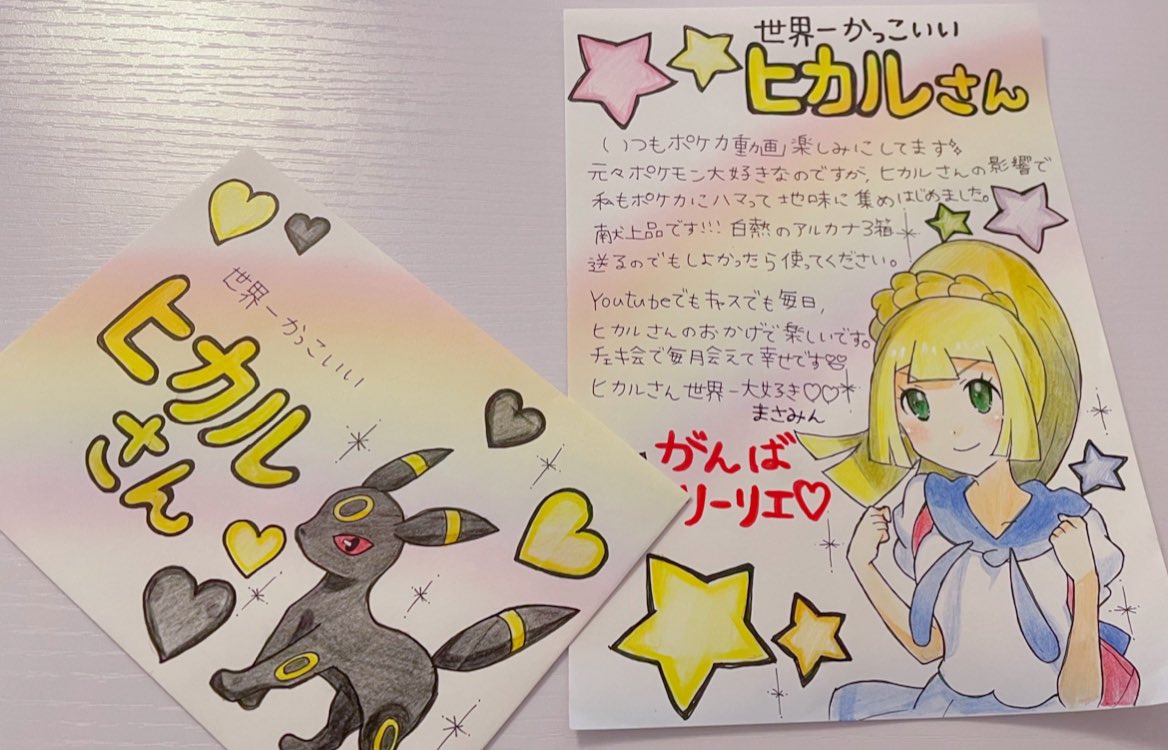 世界一かっこいい
ヒカル
さん
世界一かっこいい
ヒカルさん
いつもポケカ動画楽しみにしてます
元々ポケモン大好きなのですが、ヒカルさんの影響で
私もポケカにハマって地味に集めはじめました。
献上品です!!! 白熱のアルカナ3箱
送るのでもしよかったら使ってください。
Youtubeでもキャスでも毎日、
ヒカルさんのおかげで楽しいです。
チェキ会で毎月会えて幸せです♡♡
ヒカルさん世界一大好き♡♡
まさみん
がんば
リーリエ♡